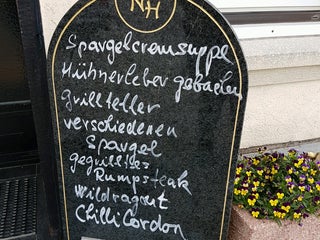 NH
Spargelcremsuppe
Hühnerleber gebacken
Grillteller
verschiedenen
Spargel
gegrilltes
Rumpsteak
Wildragout
Chilli Cordon